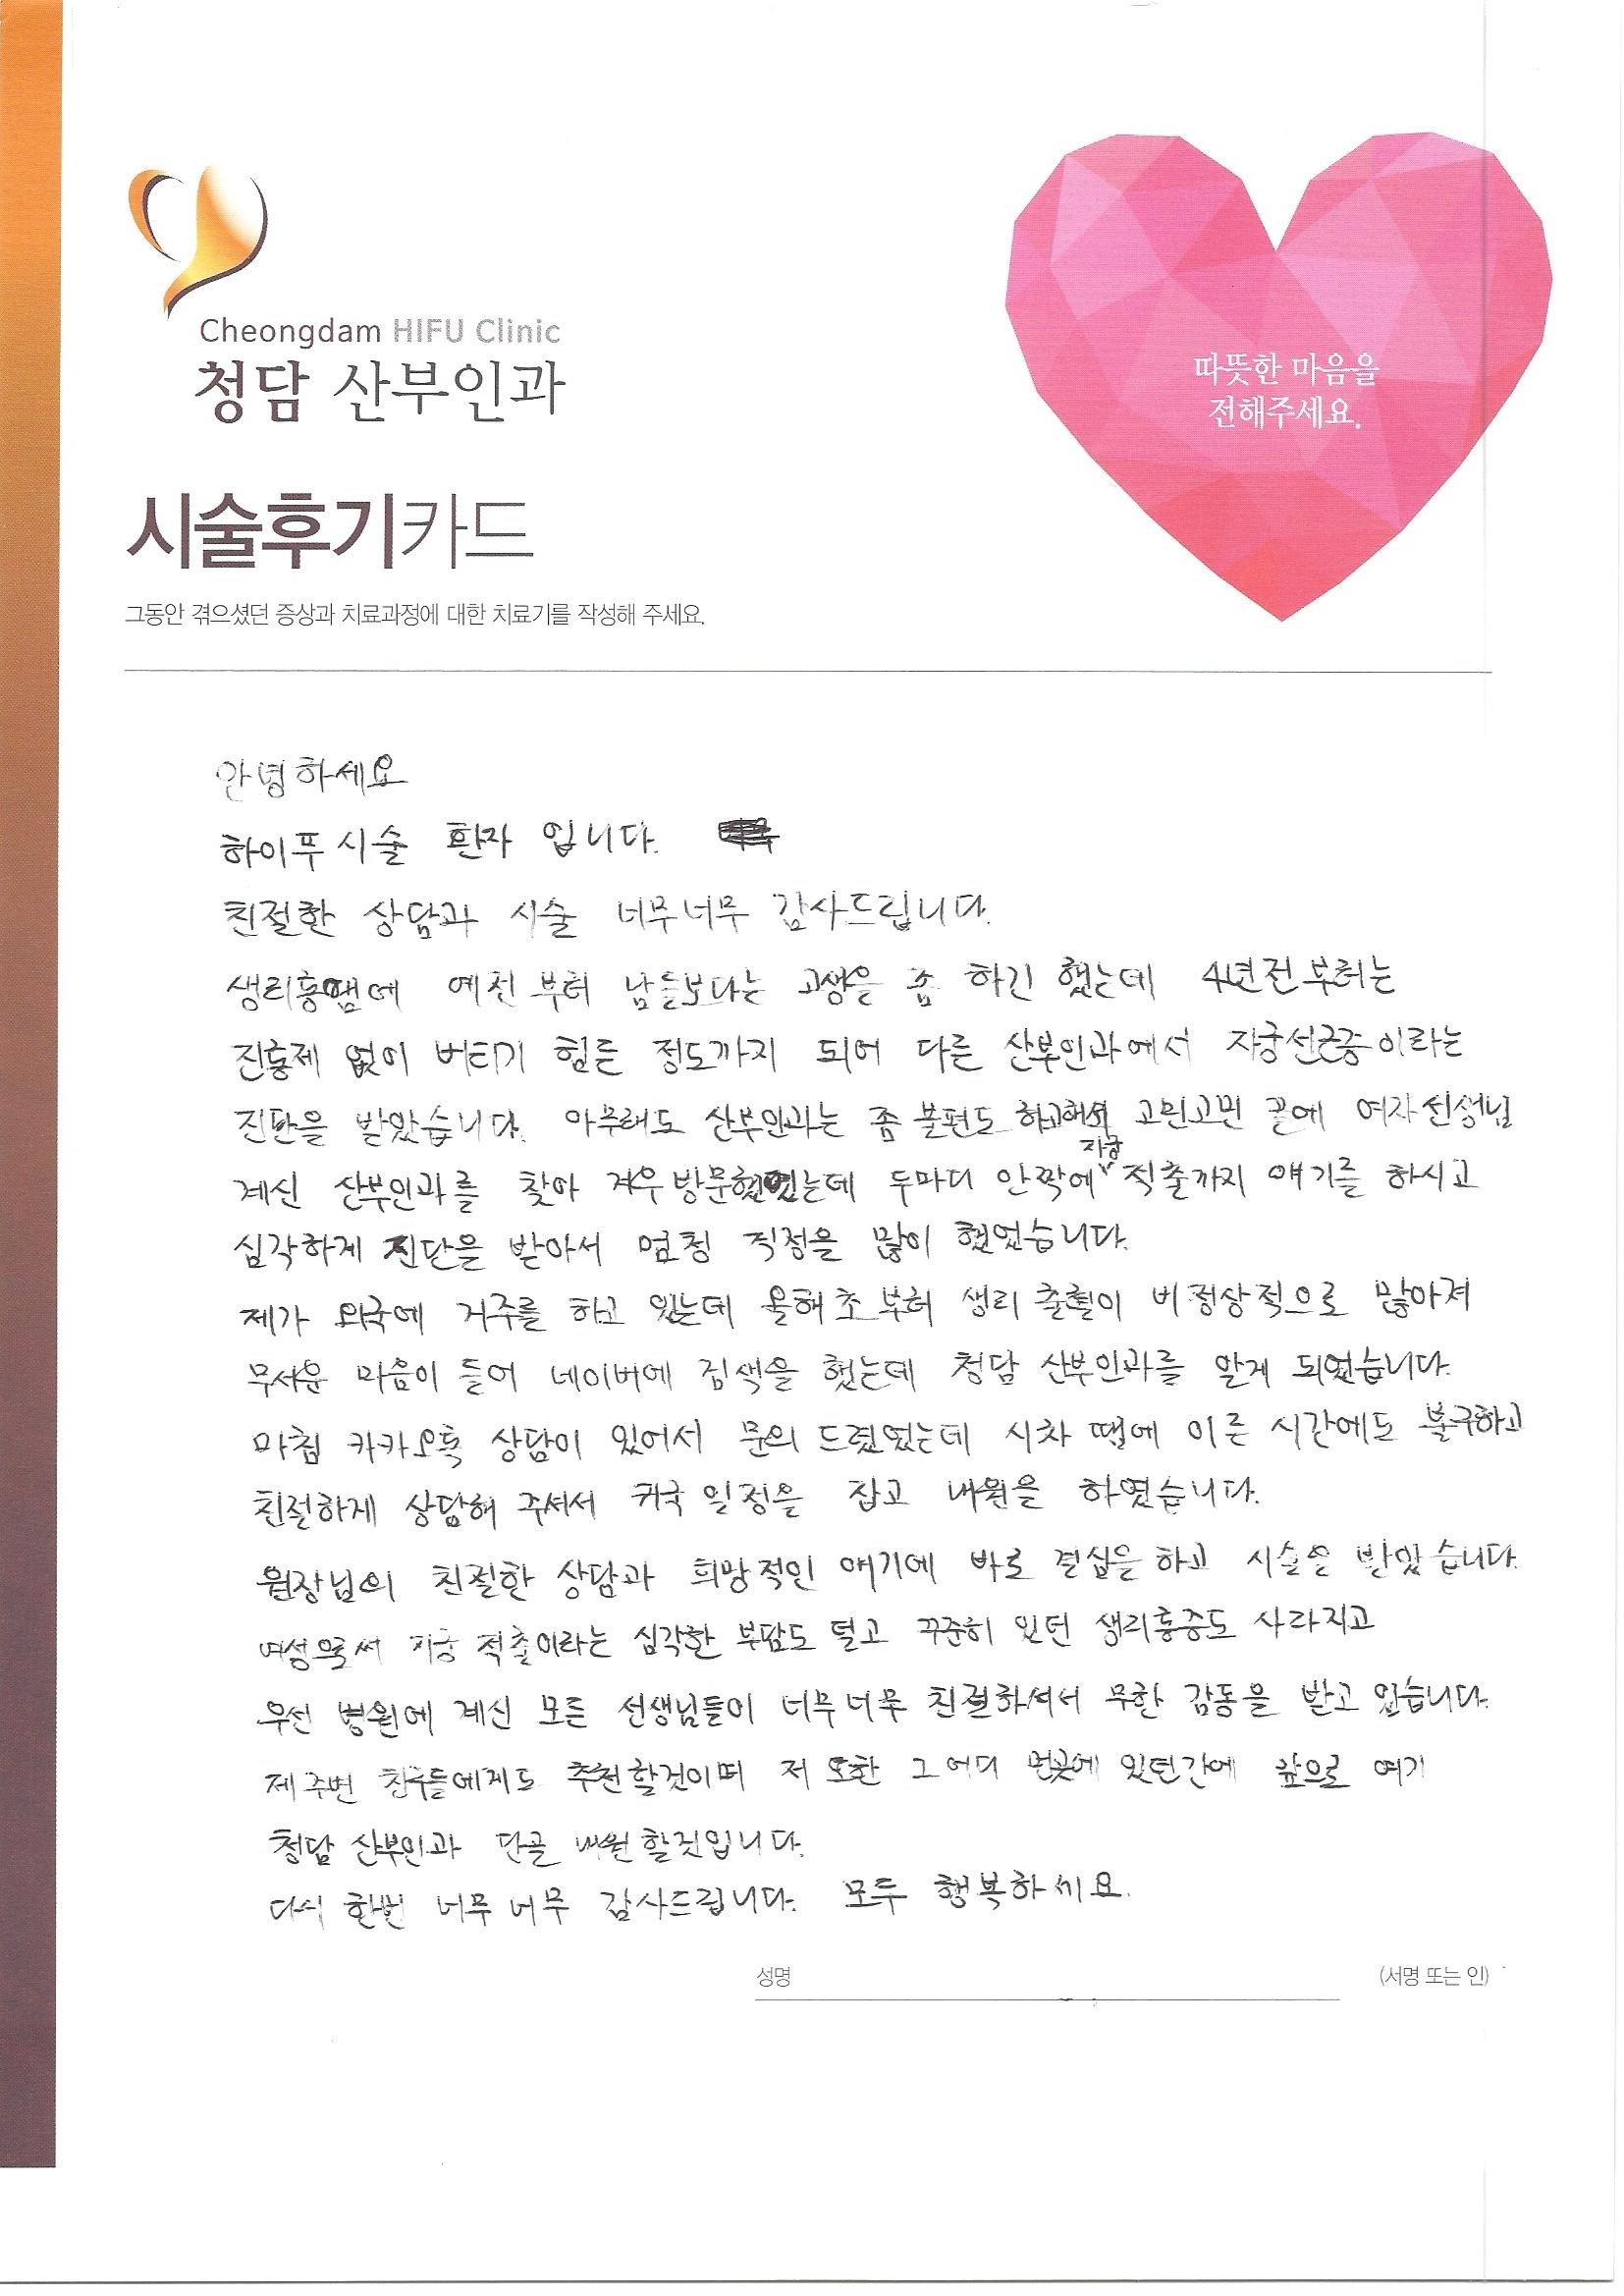 Cheongdam HIFU Clinic
청담 산부인과
따뜻한 마음을
전해주세요.
시술후기카드
그동안 겪으셨던 증상과 치료과정에 대한 치료기를 작성해 주세요.
안녕하세요
하이푸 시술 환자 입니다.
친절한 상담과 시술 너무너무 감사드립니다.
생리통땜에 예전 부터 남들보다는 고생을 좀 하긴 했는데 4년전 부터는
진통제 없이 버티기 힘든 정도까지 되어 다른 산부인과에서 자궁선근증이라는
진단을 받았습니다. 아무래도 산부인과는 좀 불편도 하고해서 고민고민 끝에 여자선생님
계신 산부인과를 찾아 겨우 방문했었는데 두마디 안짝에 자궁 적출까지 얘기를 하시고
심각하게 진단을 받아서 엄청 걱정을 많이 했었습니다.
제가 외국에 거주를 하고 있는데 올해 초 부터 생리 출혈이 비정상적으로 많아져
무서운 마음이 들어 네이버에 검색을 했는데 청담 산부인과를 알게 되었습니다.
마침 카카오톡 상담이 있어서 문의 드렸었는데 시차 땜에 이른 시간에도 불구하고
친절하게 상담해 주셔서 귀국 일정을 잡고 내원을 하였습니다.
원장님의 친절한 상담과 희망적인 얘기에 바로 결심을 하고 시술을 받았습니다.
여성으로써 자궁 적출이라는 심각한 부담도 덜고 꾸준히 있던 생리통증도 사라지고
우선 병원에 계신 모든 선생님들이 너무너무 친절하셔서 무한 감동을 받고 있습니다.
제 주변 친구들에게도 추천할것이며 저 또한 그 어디 먼곳에 있던간에 앞으로 여기
청담 산부인과 단골 내원 할것입니다.
다시 한번 너무 너무 감사드립니다. 모두 행복하세요.
성명 (서명 또는 인)